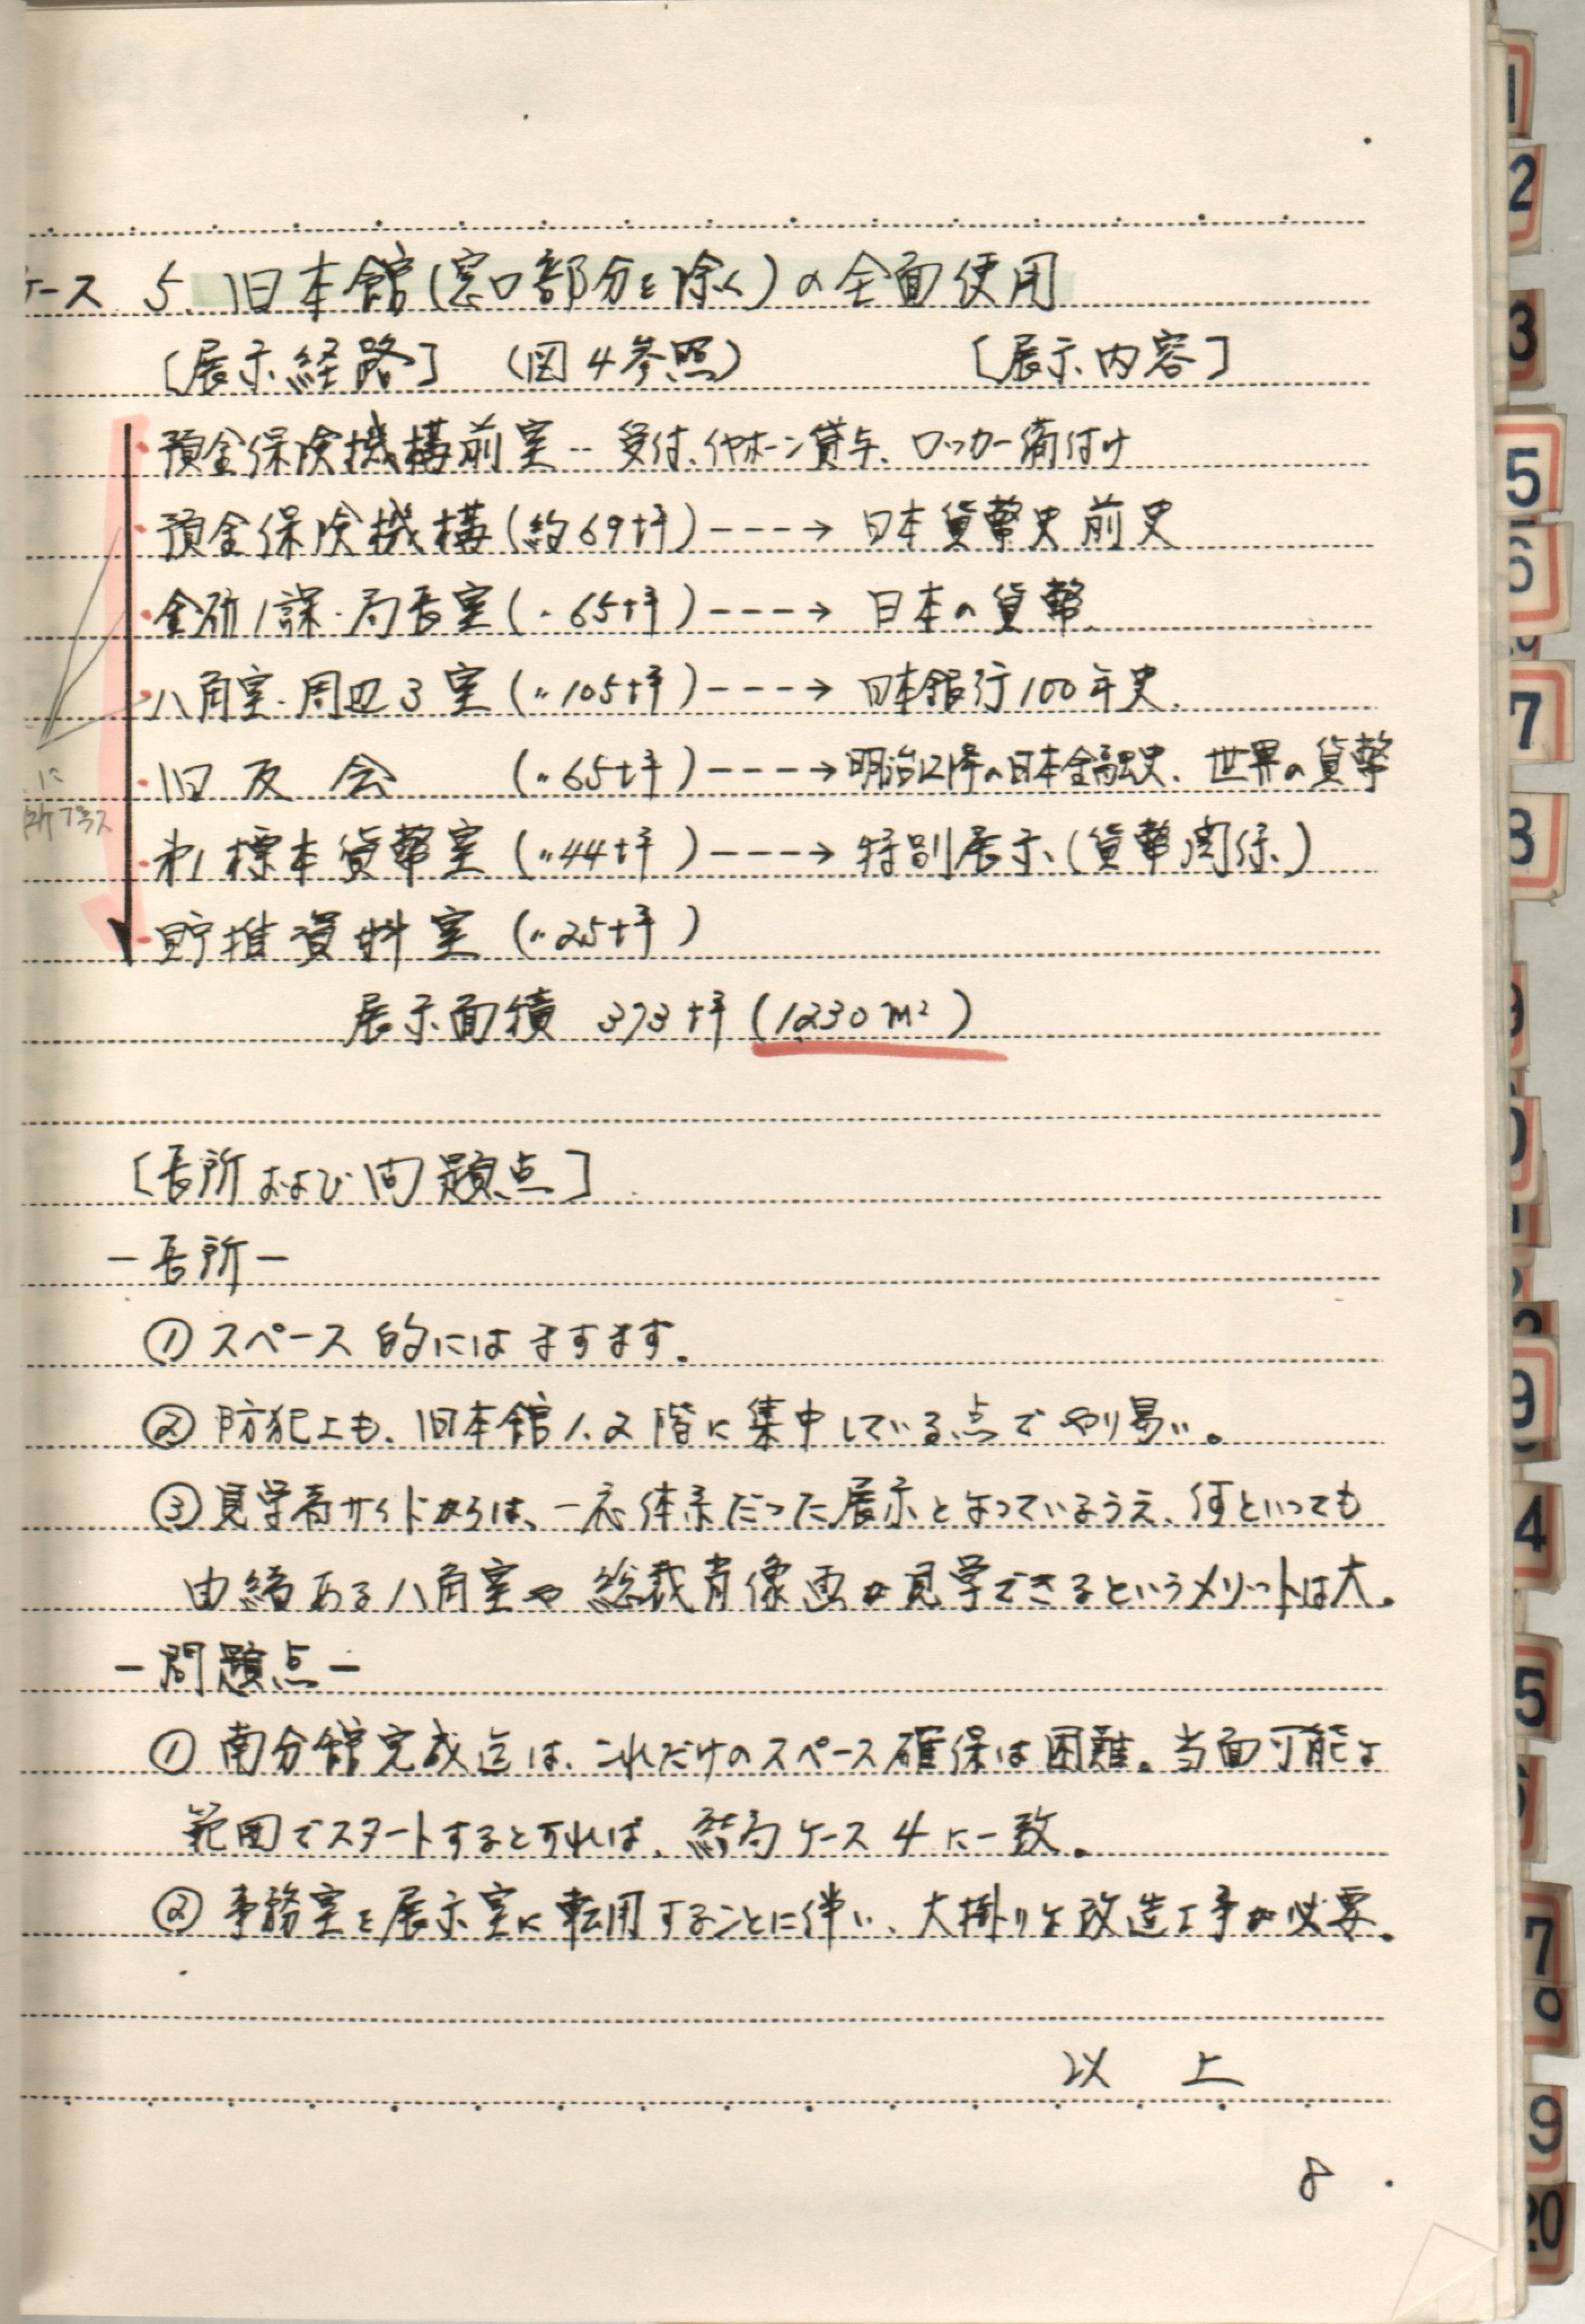 ケース 5. 旧本館(窓口部分を除く)の全面使用
[展示経路] (図4参照) [展示内容]
・預金保険機構前室‥受付、イヤホーン貸与、ロッカー備付け
・預金保険機構(約69坪)----→日本貨幣史前史
・金研1課・局長室(〃65坪)----→日本の貨幣
・八角室・周辺3室(〃105坪)----→日本銀行100年史.
・旧友会(〃65坪)----→明治以降の日本金融史、世界の貨幣
・㐧1標本貨幣室(〃44坪)----→特別展示(貨幣関係)
・貯推資料室(〃25坪)
展示面積 373坪(1,230m²)
[長所および問題点]
-長所-
① スペース的にはますます.
② 防犯上も、旧本館1.2階に集中している点でやり易い。
③ 見学者サイドからは、一応体系だった展示となっているうえ、何といっても
由緒ある八角室や総裁肖像画が見学できるというメリットは大。
-問題点-
① 南分館完成迄は、これだけのスペース確保は困難。当面可能な
範囲でスタートするとすれば、結局ケース4に一致。
② 事務室を展示室に転用することに伴い、大掛りな改造工事が必要。
以上
8
1
2
3
5
6
7
8
9
0
9
4
5
7
9
20